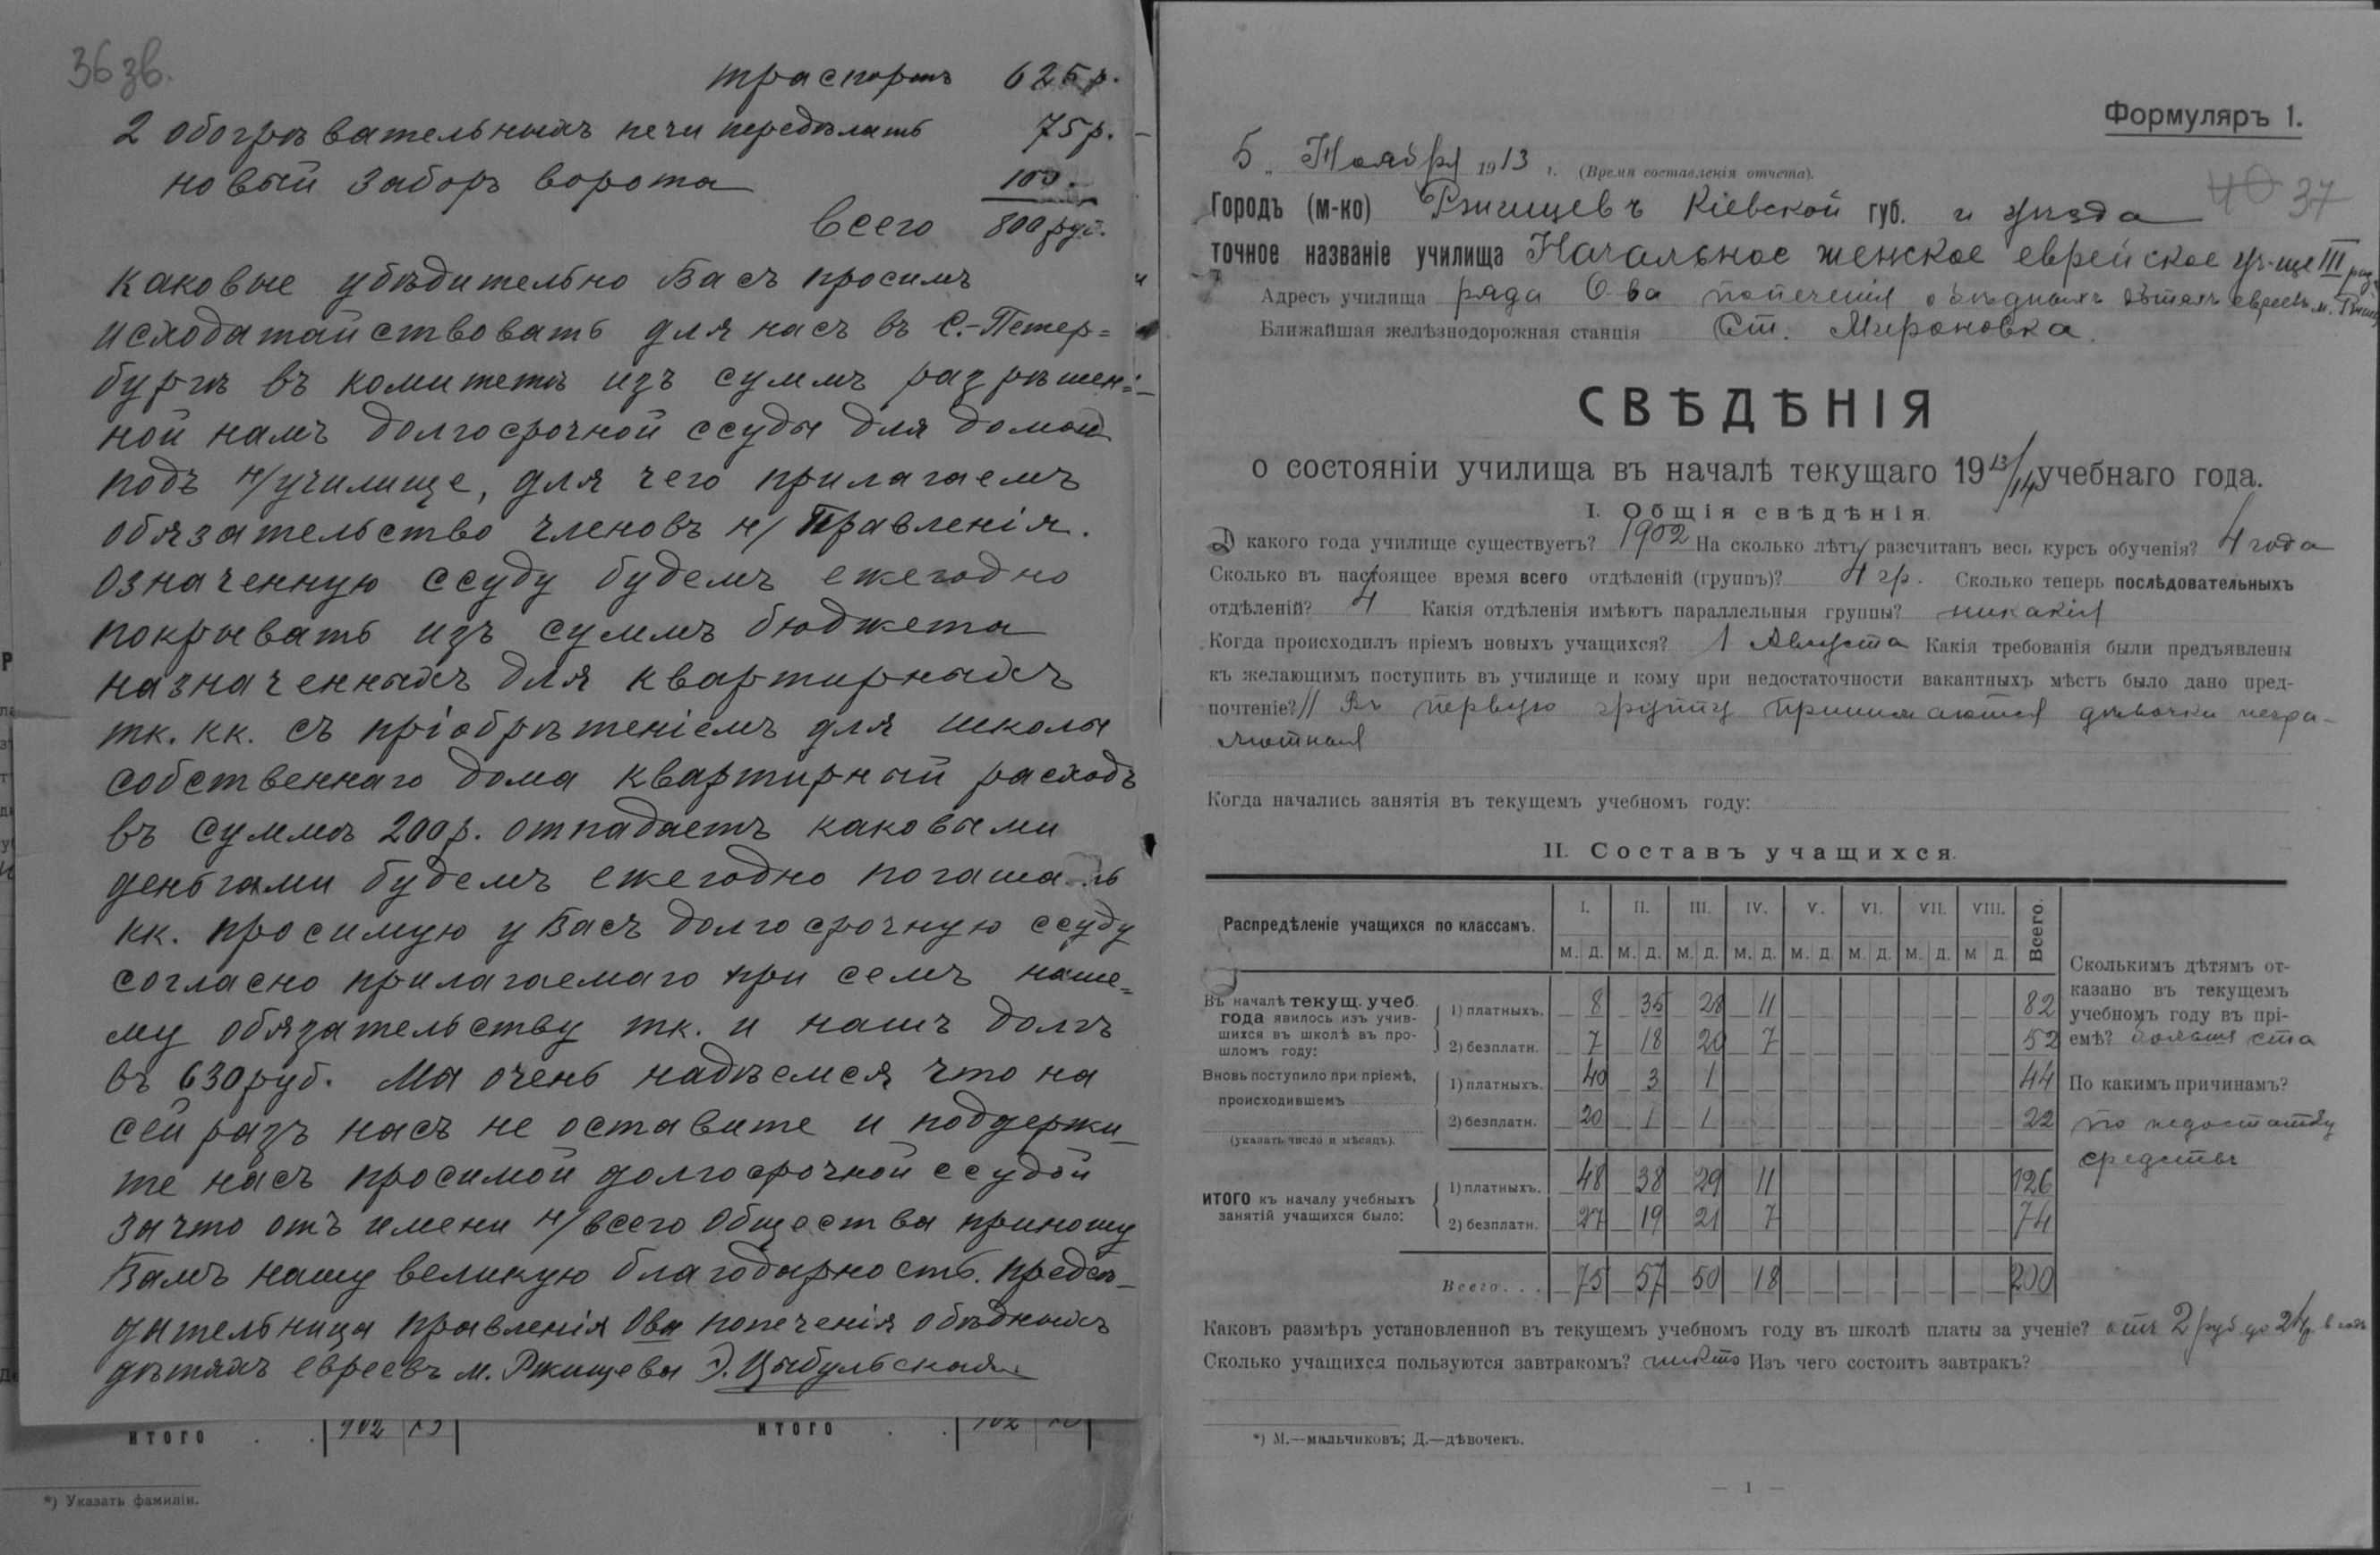 36 зв.
траспортъ 625 р.
2 обогрѣвательныхъ печи передѣлать 75 р.
новый заборъ ворота 100.
всего 800 руб.
каковые убѣдительно Васъ просимъ
исходатайствовать для насъ въ С.-Петер=
бургѣ въ комитетѣ изъ суммъ разрѣшен=
ной намъ долгосрочной ссуды для домов
подъ н/училище, для чего прилагаемъ
обязательство членовъ н/ Правленія.
Означенную ссуду будемъ ежегодно
покрывать изъ суммъ бюджета
назначенныхъ для квартирныхъ
тк. кк. съ пріобрѣтеніемъ для школы
собственнаго дома квартирный расходъ
въ суммѣ 200 р. отпадаетъ каковыми
деньгами будемъ ежегодно погаша..ть
кк. просимую у Васъ долгосрочную ссуду
согласно прилагаемаго при семъ наше=
му обязательству тк. и нашъ долгъ
въ 630 руб. Мы очень надѣемся что на
сей разъ насъ не оставите и поддержи_
те насъ просимой долгосрочной ссудой
за что отъ имени н/ всего Общества приношу
Вамъ нашу великую благодарность. предсѣ_
дательница правленія Ова попеченія о бѣдныхъ
дѣтяхъ евреевъ м. Ржищева Э. Цыбульская.
ИТОГО . . 902
ИТОГО . . 902
*) Указать фамиліи.
Формуляръ 1.
5 „ Ноября 1913 г. (Время составленія отчета).
40 37
Городъ (м-ко) Ржищевъ Кіевской губ. и уѣзда
точное названіе училища Начальное женское еврейское уч-ще III раз.
Адресъ училища ряда О-ва попеченія о бѣдныхъ дѣтяхъ евреевъ м. Ржищ
Ближайшая желѣзнодорожная станція Ст. Мироновка.
СВѢДѢНІЯ
о состояніи училища въ началѣ текущаго 1913/14 учебнаго года.
I. Общія свѣдѣнія.
С какого года училище существуетъ? 1902 На сколько лѣтъ разсчитанъ весь курсъ обученія? 4 года
Сколько въ настоящее время всего отдѣленій (группъ)? 4 гр. Сколько теперь послѣдовательныхъ
отдѣленій? 4 Какія отдѣленія имѣютъ параллельныя группы? никакія
Когда происходилъ пріемъ новыхъ учащихся? 1 Августа Какія требованія были предъявлены
къ желающимъ поступить въ училище и кому при недостаточности вакантныхъ мѣстъ было дано пред-
почтеніе? // Въ первую группу принимаются дѣвочки негра-
мотныя
Когда начались занятія въ текущемъ учебномъ году:
II. Составъ учащихся.
Распредѣленіе учащихся по классамъ. I. II. III. IV. V. VI. VII. VIII. Всего.
М. Д. М. Д. М. Д. М. Д. М. Д. М. Д. М. Д. М Д.
Въ началѣ текущ. учеб.
года явилось изъ учив-
шихся въ школѣ въ про-
шломъ году:
1) платныхъ. 8 35 28 11 82
2) безплатн. 7 18 20 7 52
Вновь поступило при пріемѣ,
происходившемъ
(указать число и мѣсяцъ).
1) платныхъ. 40 3 1 44
2) безплатн. 20 1 1 22
ИТОГО къ началу учебныхъ
занятій учащихся было:
1) платныхъ. 48 38 29 11 126
2) безплатн. 27 19 21 7 74
Всего. . . 75 57 50 18 200
Сколькимъ дѣтямъ от-
казано въ текущемъ
учебномъ году въ прі-
емѣ? больше ста
По какимъ причинамъ?
по недостатку
средствъ
Каковъ размѣръ установленной въ текущемъ учебномъ году въ школѣ платы за ученіе? отъ 2 руб до 24 р. в годъ
Сколько учащихся пользуются завтракомъ? никто Изъ чего состоитъ завтракъ?
*) М.—мальчиковъ; Д.—дѣвочекъ.
— 1 —